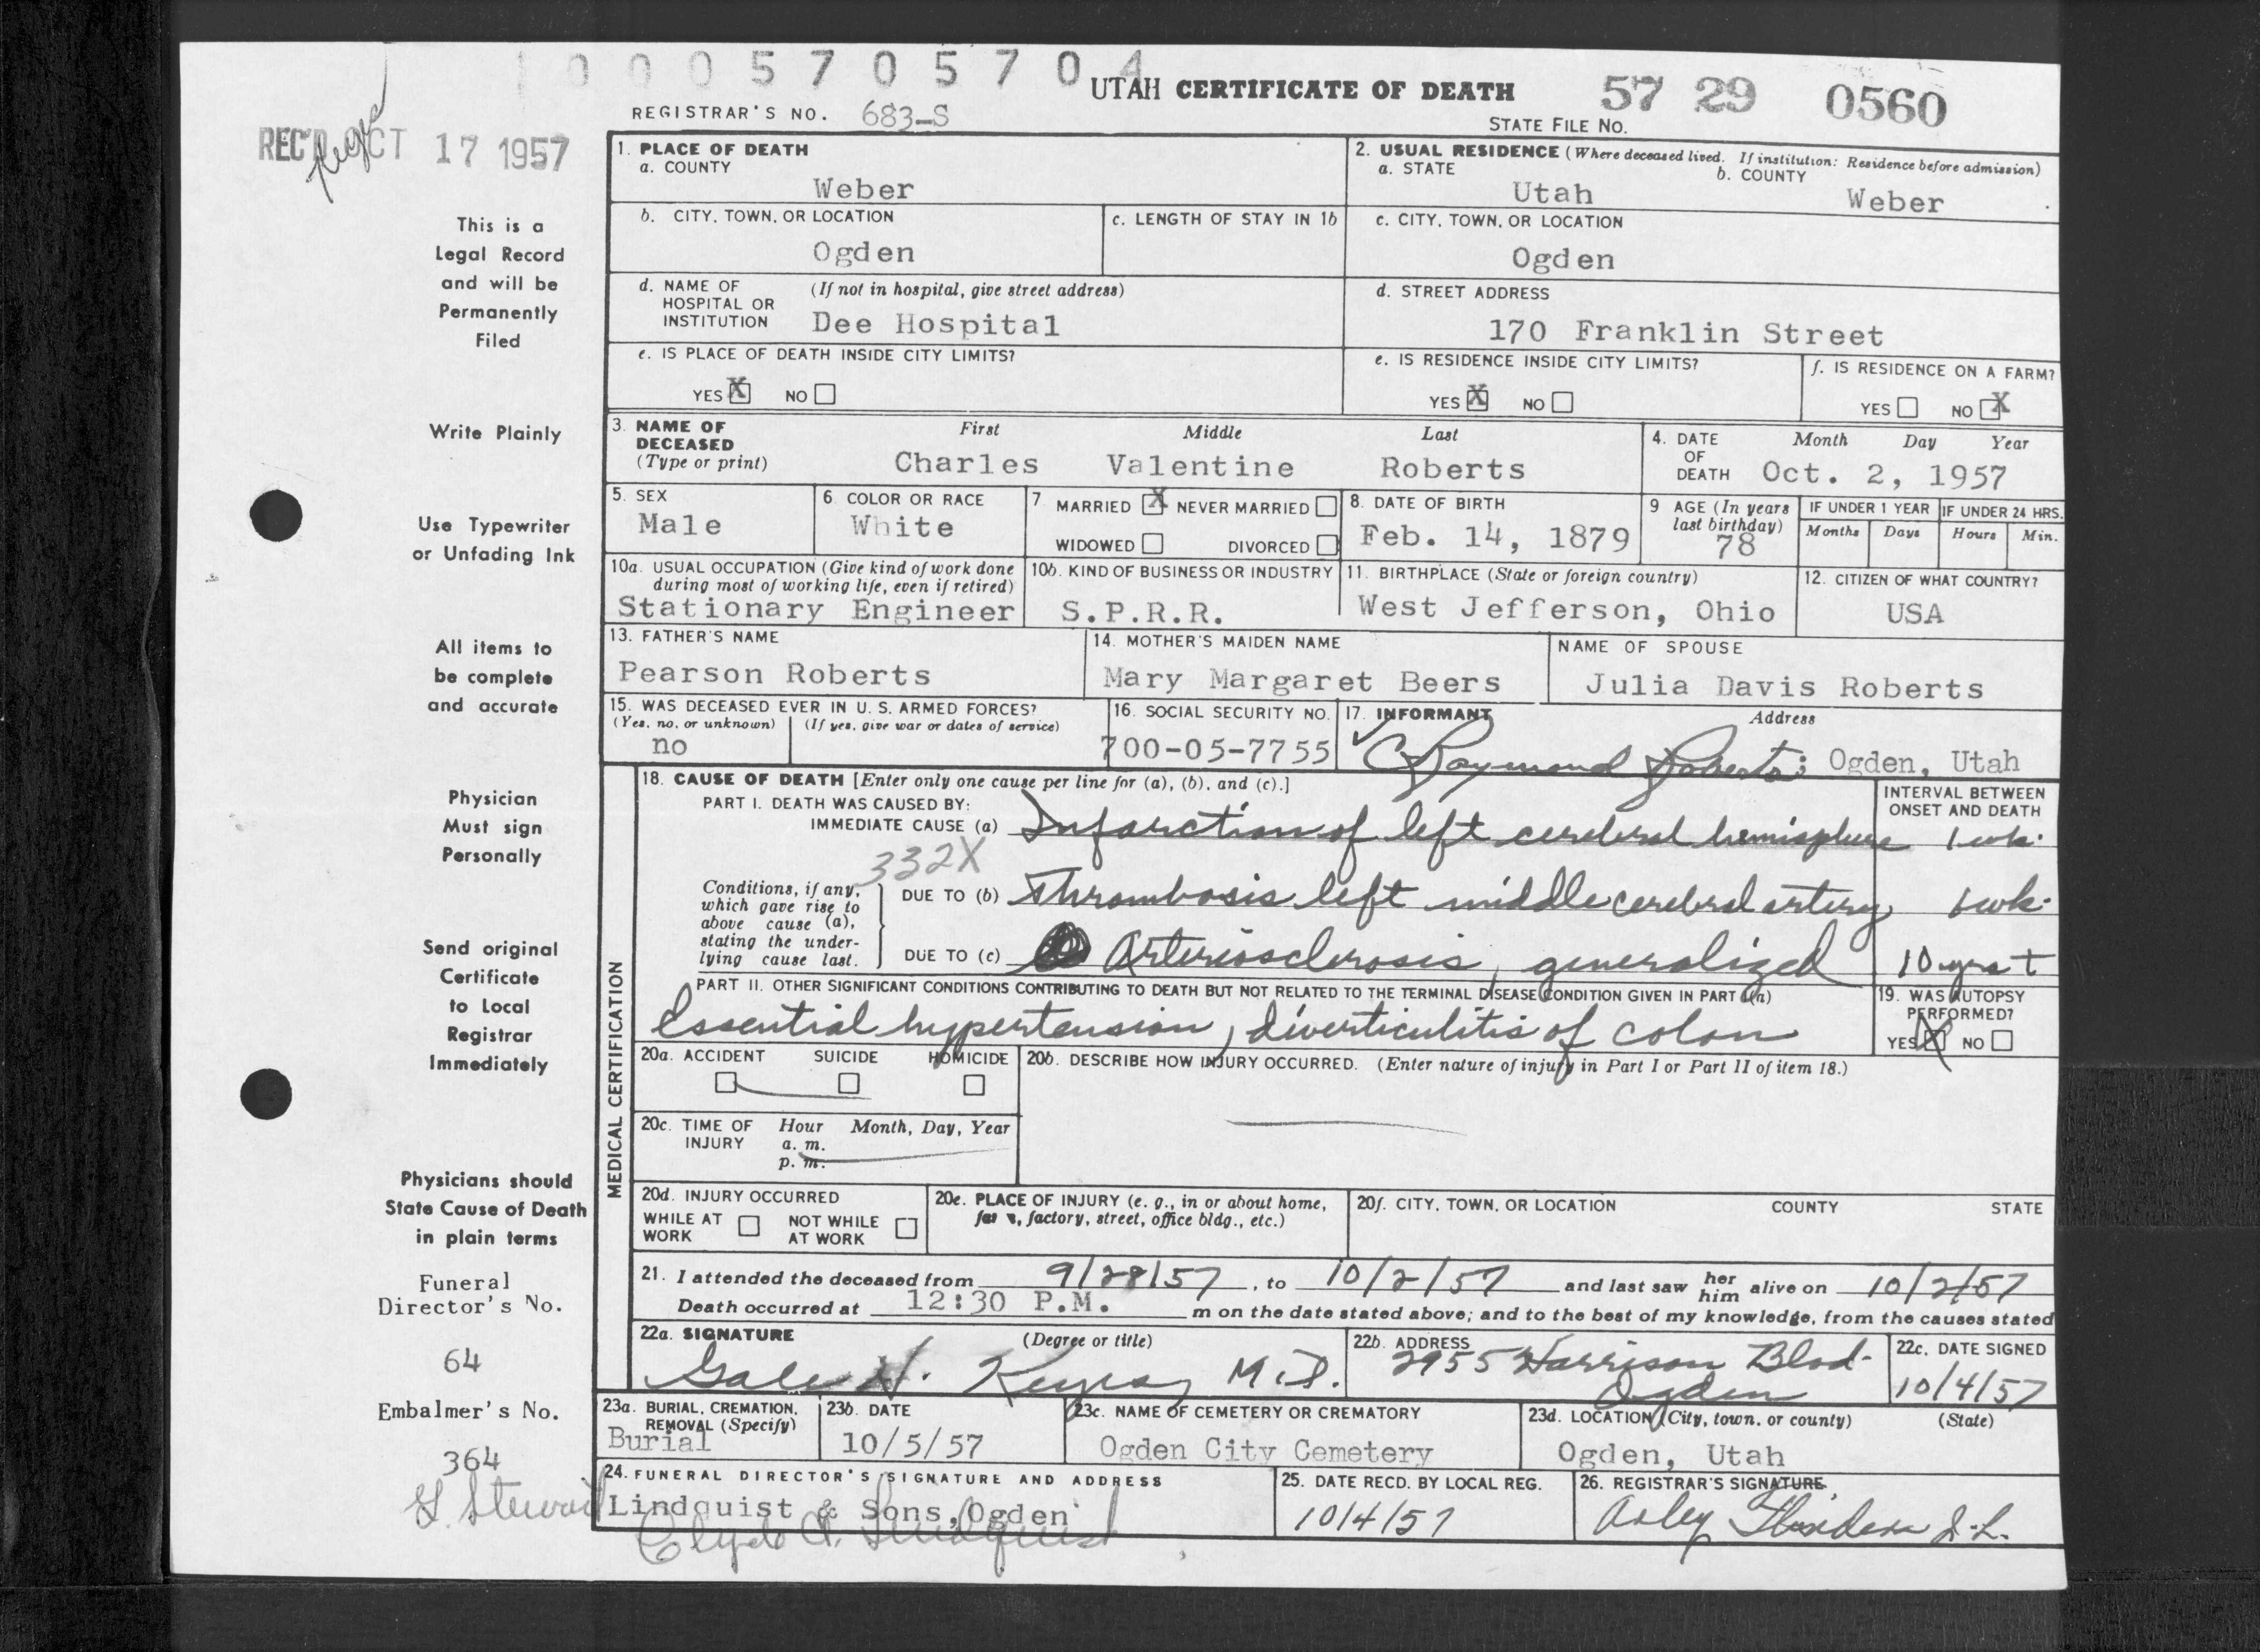 0005705704
UTAH CERTIFICATE OF DEATH
57 29 0560
REGISTRAR'S NO. 683-S
STATE FILE NO.
REC'D OCT 17 1957
This is a
Legal Record
and will be
Permanently
Filed
Write Plainly
Use Typewriter
or Unfading Ink
All items to
be complete
and accurate
Physician
Must sign
Personally
Send original
Certificate
to Local
Registrar
Immediately
Physicians should
State Cause of Death
in plain terms
Funeral
Director's No.
64
Embalmer's No.
364
1. PLACE OF DEATH
a. COUNTY
Weber
2. USUAL RESIDENCE (Where deceased lived. If institution: Residence before admission)
a. STATE
Utah
b. COUNTY
Weber
b. CITY, TOWN, OR LOCATION
Ogden
c. LENGTH OF STAY IN 1b
c. CITY, TOWN, OR LOCATION
Ogden
d. NAME OF HOSPITAL OR INSTITUTION
(If not in hospital, give street address)
Dee Hospital
d. STREET ADDRESS
170 Franklin Street
e. IS PLACE OF DEATH INSIDE CITY LIMITS?
YES X NO
e. IS RESIDENCE INSIDE CITY LIMITS?
YES X NO
f. IS RESIDENCE ON A FARM?
YES NO X
3. NAME OF DECEASED
(Type or print)
First Middle Last
Charles Valentine Roberts
4. DATE OF DEATH
Month Day Year
Oct. 2, 1957
5. SEX
Male
6. COLOR OR RACE
White
7 MARRIED X NEVER MARRIED
WIDOWED DIVORCED
8. DATE OF BIRTH
Feb. 14, 1879
9 AGE (In years last birthday)
78
IF UNDER 1 YEAR
Months Days
IF UNDER 24 HRS.
Hours Min.
10a. USUAL OCCUPATION (Give kind of work done
during most of working life, even if retired)
Stationary Engineer
10b. KIND OF BUSINESS OR INDUSTRY
S.P.R.R.
11. BIRTHPLACE (State or foreign country)
West Jefferson, Ohio
12. CITIZEN OF WHAT COUNTRY?
USA
13. FATHER'S NAME
Pearson Roberts
14. MOTHER'S MAIDEN NAME
Mary Margaret Beers
NAME OF SPOUSE
Julia Davis Roberts
15. WAS DECEASED EVER IN U. S. ARMED FORCES?
(Yes, no, or unknown) (If yes, give war or dates of service)
no
16. SOCIAL SECURITY NO.
700-05-7755
17. INFORMANT
Address
C Raymond Roberts; Ogden, Utah
MEDICAL CERTIFICATION
18. CAUSE OF DEATH [Enter only one cause per line for (a), (b), and (c).]
INTERVAL BETWEEN
ONSET AND DEATH
PART I. DEATH WAS CAUSED BY:
IMMEDIATE CAUSE (a) Infarction of left cerebral hemisphere 1 wk.
332X
Conditions, if any,
which gave rise to
above cause (a),
stating the under-
lying cause last.
DUE TO (b) Thrombosis left middle cerebral artery 1 wk.
DUE TO (c) Arteriosclerosis, generalized 10 yrs +
PART II. OTHER SIGNIFICANT CONDITIONS CONTRIBUTING TO DEATH BUT NOT RELATED TO THE TERMINAL DISEASE CONDITION GIVEN IN PART I(a)
Essential hypertension, diverticulitis of colon
19. WAS AUTOPSY
PERFORMED?
YES X NO
20a. ACCIDENT SUICIDE HOMICIDE
20b. DESCRIBE HOW INJURY OCCURRED. (Enter nature of injury in Part I or Part II of item 18.)
20c. TIME OF INJURY
Hour Month, Day, Year
a. m.
p. m.
20d. INJURY OCCURRED
WHILE AT WORK NOT WHILE AT WORK
20e. PLACE OF INJURY (e. g., in or about home,
factory, street, office bldg., etc.)
20f. CITY, TOWN, OR LOCATION COUNTY STATE
21. I attended the deceased from 9/28/57, to 10/2/57 and last saw her him alive on 10/2/57
Death occurred at 12:30 P.M. m on the date stated above; and to the best of my knowledge, from the causes stated
22a. SIGNATURE (Degree or title)
M.D.
22b. ADDRESS
2955 Harrison Blvd.
Ogden
22c. DATE SIGNED
10/4/57
23a. BURIAL, CREMATION,
REMOVAL (Specify)
Burial
23b. DATE
10/5/57
23c. NAME OF CEMETERY OR CREMATORY
Ogden City Cemetery
23d. LOCATION (City, town, or county) (State)
Ogden, Utah
24. FUNERAL DIRECTOR'S SIGNATURE AND ADDRESS
Lindquist & Sons, Ogden
Lindquist
25. DATE RECD. BY LOCAL REG.
10/4/57
26. REGISTRAR'S SIGNATURE